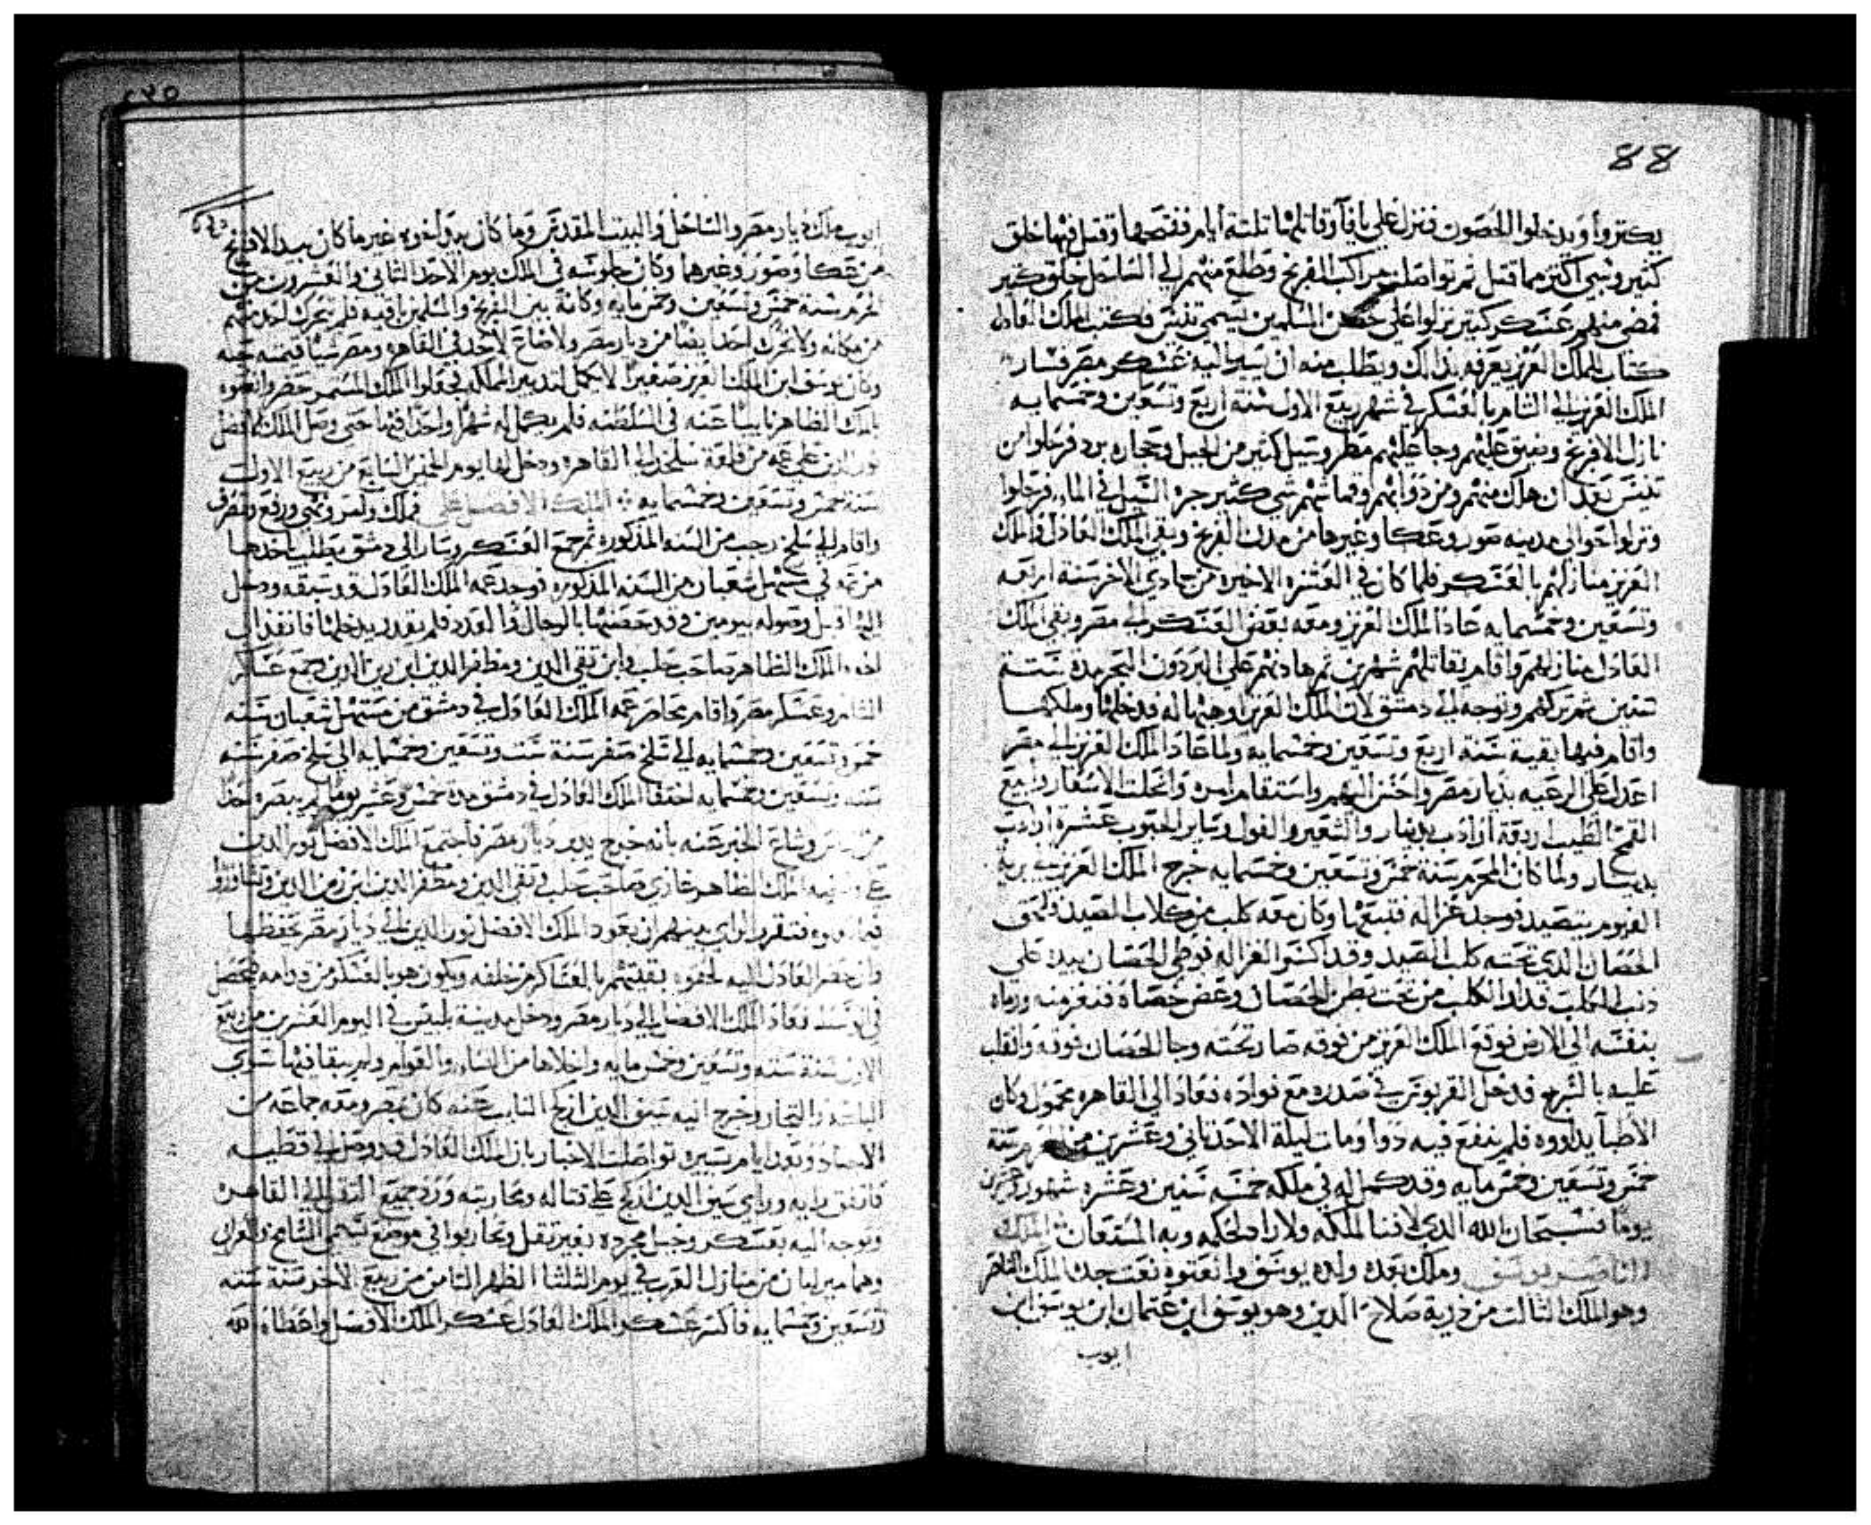 88
يكتروا ويدخلوا الحصون فنزل على يافا وقاتلها تلتة أيام ففتحها وقتل فيها خلق
كتير وسبي اكتر مما قتل تم تواصلت مراكب الفرنج وطلع منهم الي الساحل خلق كتير
فمضى منهم عسكر كتير نزلوا على حصن المسلمين يسمى تبنين فكتب الملك العادل
كتاب للملك العزيز يعرفه بذلك ويطلب منه ان يسير اليه عسكر مصر فسار
الملك العزيز الي الشام بالعسكر في شهر ربيع الاول سنة اربع وتسعين وخمسمايه
نازل الافرنج وضيق عليهم وجا عليهم مطر وسيل كتير من الجبل وحجاره برد فرحلوا من
تبنين بعد ان هلك منهم ومن دوابهم وقماشهم شي كتير جره السيل في الماء فرحلوا
ونزلوا حوالى مدينه صور وعكا وغيرها من مدن الفرنج وبقي الملك العادل والملك
العزيز منازلهم بالعسكر فلما كان في العشره الاخيره من جمادي الاخر سنة اربعه
وتسعين وخمسمايه عاد الملك العزيز ومعه بعض العسكر الي مصر وبقي الملك
العادل منازلهم واقام يقاتلهم شهرين تم هادنهم على البر دون البحر مدة ستة
سنين تم تركهم وتوجه الي دمشق لان الملك العزيز اوهبها له فدخلها وملكها
واقام فيها بقية سنة اربع وتسعين وخمسمايه ولما عاد الملك العزيز الي مصر
اعدل على الرعيه بديار مصر واحسن اليهم واستقام امره وانحلت الاسعار وابيع
القمح الطيب اربعة ارادب بدينار والشعير والفول وساير الحبوب عشرة ارادب
بدينار ولما كان المحرم سنة خمس وتسعين وخمسمايه خرج الملك العزيز الي بريه
الفيوم يتصيد فوجد غزاله فتبعها وكان معه كلب من كلاب الصيد فلحق
الحصان الدي تحته كلب الصيد وقد اكسر الغزاله فوطي الحصان بيده على
دنب الكلب فدار الكلب من تحت بطن الحصان وعض خصاه فنفر منه ورماه
بنفسه الى الارض فوقع الملك العزيز من فوقه صار تحته وجا الحصان فوقه وانقلب
عليه بالسرج فدخل القربوس في صدره مع فواده فعاد الى القاهره محمول وكان
الأطبا يداووه فلم ينفع فيه دوا ومات ليلة الاحد تاني وعشرين من المحرم سنة
خمس وتسعين وخمس مايه وقد كمل له في ملكه خمسه سنين وعشره شهور وعشرين
يوما فسبحان الله الدي لا فنا لملكه ولا راد لحكمه وبه المستعان الملك
الناصر يوسف وملك بعده ولده يوسف وانعتوه نعت جده الملك الناصر
وهو الملك التالت من ذرية صلاح الدين وهو يوسف ابن عتمان ابن يوسف ابن
ايوب
ايوب ملك ديار مصر والساحل والبيت المقدس وما كان بيد والده واخوته غير ما كان بيد الافرنج
من عكا وصور وغيرها وكان جلوسه في الملك يوم الاحد الثاني والعشرون من
المحرم سنة خمس وتسعين وخمس مايه وكانة بين الفرنج والمسلمين باقيه فلم يتحرك احد منهم
من مكانه ولا تحرك احد ايضا من ديار مصر ولا ضاع لاحد في القاهره ومصر شيا قيمته حبه
وكان يوسف ابن الملك العزيز صغيرا لا يكمل لتدبير المملكه
بالملك الظاهر نايبا عنه في السلطنه فلم يكمل له شهرا واحدا فيها حتى وصل الملك الافضل
نور الدين علي عمه من قلعة صلخد الي القاهره ودخل لها يوم الخميس السابع من ربيع الاول
سنة خمس وتسعين وخمسمايه الملك الافضل على فملك وامر ونهى ورفع وتصرف
واقام الي سلخ رجب من السنه المذكوره تم جمع العسكر وسار الى دمشق يطلب ياخدها
من عمه في مستهل شعبان من السنه المذكوره فوجد عمه الملك العادل قد سبقه ودخل
اليها قبل وصوله بيومين وقد حصنها بالرجال والعدد فلم يقدر يدخلها فانفد الى
اخوه الملك الظاهر صاحب حلب وابن تقي الدين ومظفر الدين ابن زين الدين وجمع عساكر
الشام وعسكر مصر واقام يحاصر عمه الملك العادل في دمشق من مستهل شعبان سنه
خمس وتسعين وخمسمايه الي سلخ صفر سنة ست وتسعين وخمسمايه
سته وتسعين وخمسمايه اختفا الملك العادل في دمشق مدة خمس وعشر يوما لم يبصره احدا
وشاع الخبر عنه بانه خرج يريد ديار مصر فاجتمع الملك الافضل نور الدين
على واخيه الملك الظاهر غازي صاحب حلب وتقى الدين ومظفر الدين ابن زين الدين وتشاوروا
فتقرر الراي بينهم ان يعود الملك الافضل نور الدين الي ديار مصر يحفظها
وان حضر العادل اليه لحقوه بقيتهم بالعساكر من خلفه ويكون هو بالعسكر من قدامه فيحصل
في الوسط فعاد الملك الافضل الي ديار مصر ودخل مدينة بلبيس في اليوم العشرين من ربيع
الاول سنة سته وتسعين وخمس مايه واخلاها من النساء والعوام ولم يبقا فيها سوي
والتجار وخرج اليه سيف الدين ازكج النايب عنه كان بمصر ومعه جماعه من
وبعد ايام يسيره تواصلت الاخبار بان الملك العادل قد وصل الي قطيه
فاتفق رايه وراي سيف الدين ازكج على قتاله ومحاربته ورد جميع التقل الي القاهره
وتوجه اليه بعسكر وخيل مجرده بغير تقل وتحاربوا في موضع يسمى السانح والغرابي
وهما ميرلتان من منازل العرب في يوم التلتا الظهر التامن من ربيع الاخر سنة سته
وتسعين وخمسمايه فاكسر عسكر الملك العادل عسكر الملك الافضل واعطاه الله